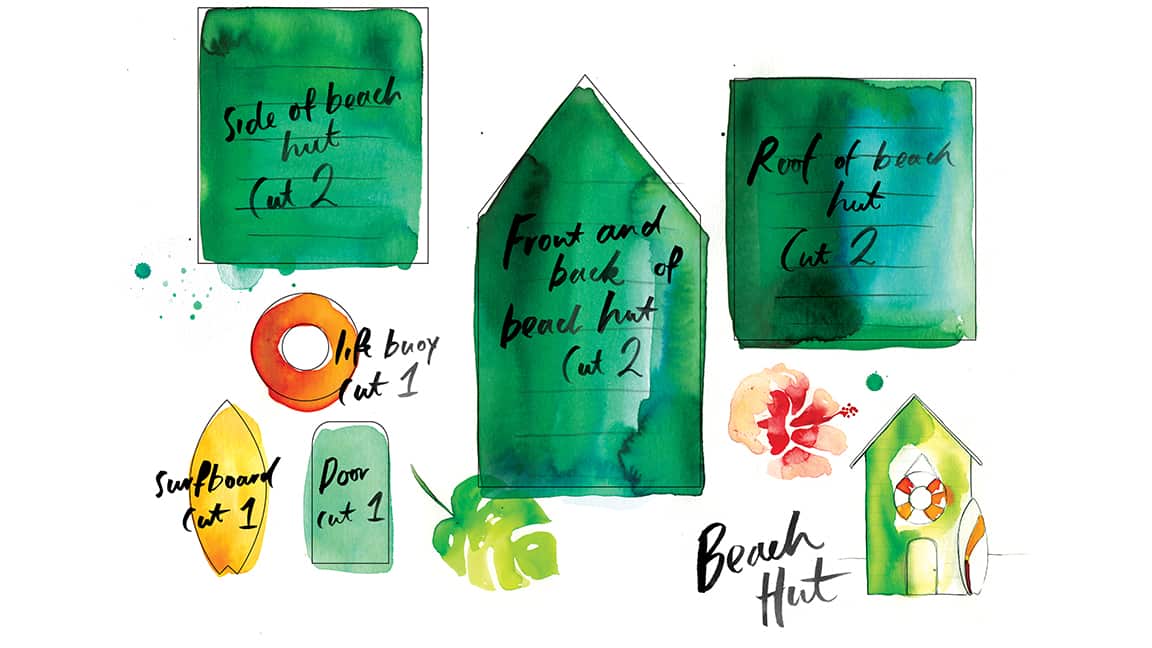 Side of beach
hut
Cut 2
Front and
back of
beach hut
Cut 2
Roof of beach
hut
Cut 2
life buoy
Cut 1
Surfboard
Cut 1
Door
Cut 1
Beach
Hut